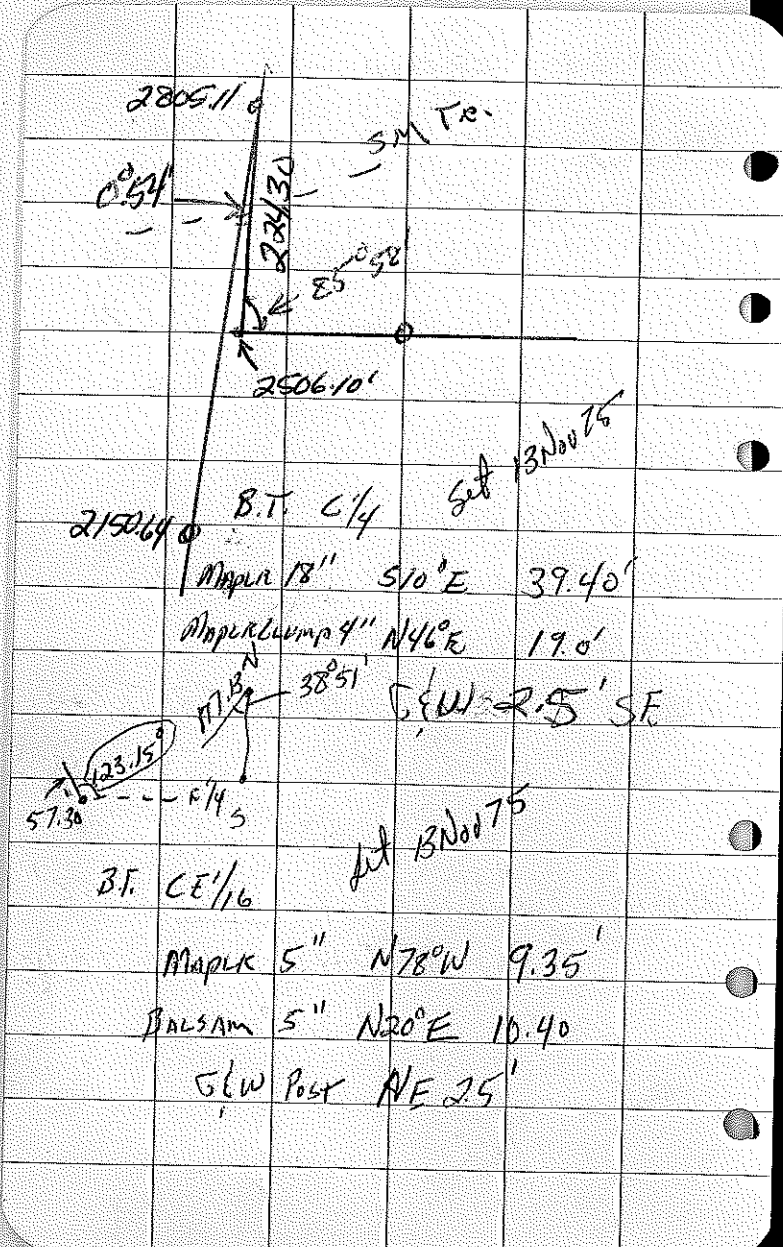 2805.11'
SM Tr.
0°54'
2243.0
85°58'
2506.10'
Set 13 Nov 75
B.T. C 1/4
2150.64
Maple 18" S10°E 39.40'
Maple Clump 4" N46°E 19.0'
N
M.B.
38°51'
G&W 2.5' SE
123.15°
57.30
E 1/4
S
Set 13 Nov 75
B.T. CE 1/16
Maple 5" N78°W 9.35'
Balsam 5" N20°E 10.40
G&W Post NE 2.5'